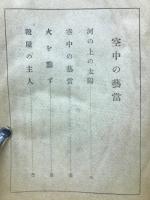 空中の藝當
河の上の太陽
空中の藝當
火を翳す
靴屋の主人